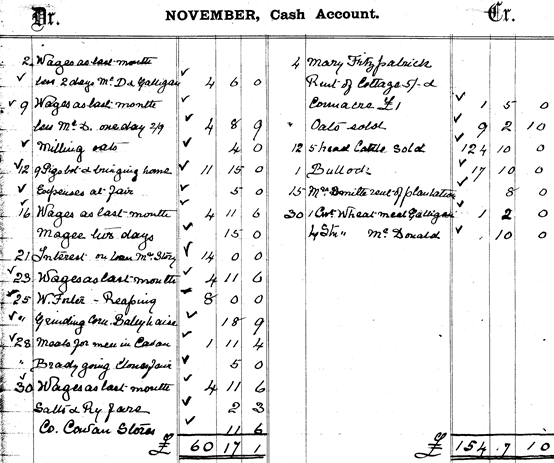 Dr. NOVEMBER, Cash Account. Cr.
2 Wages as last month
less 2 days Mc D & Galligan 4 6 0
9 Wages as last month
less Mc D. one day 2/9 4 8 9
Milling oats 4 0
12 9 Pigs bot & bringing home 11 15 0
Expenses at Fair 5 0
16 Wages as last month 4 11 6
Magee two days 15 0
21 Interest on loan Mc Story 14 0 0
23 Wages as last month 4 11 6
25 W. Foster - Reaping 8 0 0
" Grinding Corn. Baleyhaise 18 9
28 Meals for men in Cavan 1 11 4
" Brady going Clones fair 5 0
30 Wages as last month 4 11 6
Salts & Ry fare 2 3
Co. Cavan Stores 11 6
£ 60 17 1
4 Mary Fitzpatrick
Rent of Cottage 5/- &
Conacre £1 1 5 0
" Oats sold 9 2 10
12 5 head Cattle sold 124 10 0
1 Bullock 17 10 0
15 rent of plantation 8 0
30 1 Cwt Wheat meal Galligan 1 2 0
4 St " Mc Donald 10 0
£ 154 7 10